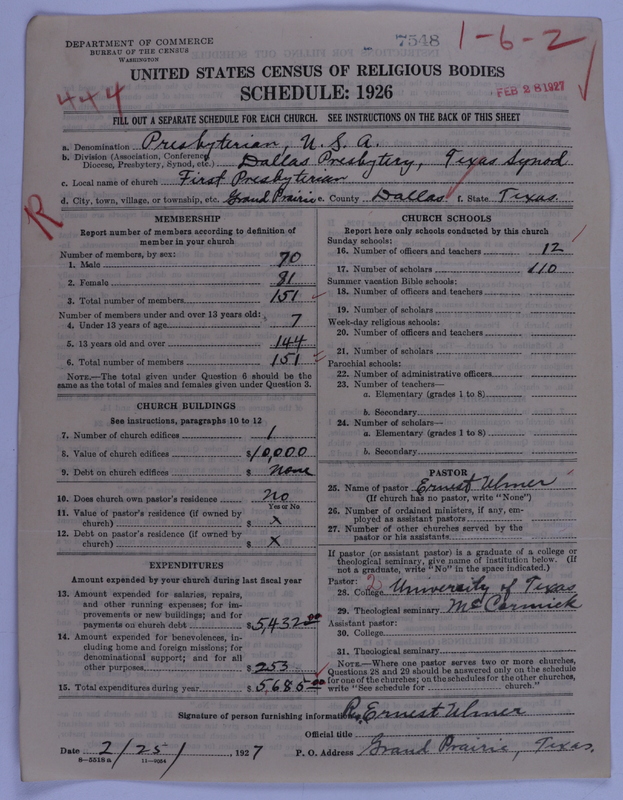 DEPARTMENT OF COMMERCE
BUREAU OF THE CENSUS
WASHINGTON
7548
1-6-2
UNITED STATES CENSUS OF RELIGIOUS BODIES
SCHEDULE: 1926
444
FEB 28 1927
FILL OUT A SEPARATE SCHEDULE FOR EACH CHURCH. SEE INSTRUCTIONS ON THE BACK OF THIS SHEET
a. Denomination Presbyterian, U.S.A.
b. Division (Association, Conference, Diocese, Presbytery, Synod, etc.) Dallas Presbytery, Texas Synod
c. Local name of church First Presbyterian
d. City, town, village, or township, etc. Grand Prairie e. County Dallas f. State Texas.
R
MEMBERSHIP
Report number of members according to definition of
member in your church
Number of members, by sex:
1. Male 70
2. Female 81
3. Total number of members 151
Number of members under and over 13 years old:
4. Under 13 years of age 7
5. 13 years old and over 144
6. Total number of members 151
NOTE.—The total given under Question 6 should be the
same as the total of males and females given under Question 3.
CHURCH BUILDINGS
See instructions, paragraphs 10 to 12
7. Number of church edifices 1
8. Value of church edifices $10,000
9. Debt on church edifices $ none
10. Does church own pastor's residence no
Yes or No
11. Value of pastor's residence (if owned by
church) $ x
12. Debt on pastor's residence (if owned by
church) $ x
EXPENDITURES
Amount expended by your church during last fiscal year
13. Amount expended for salaries, repairs,
and other running expenses; for im-
provements or new buildings; and for
payments on church debt $5,432.00
14. Amount expended for benevolences, in-
cluding home and foreign missions; for
denominational support; and for all
other purposes $253
15. Total expenditures during year $5,685.00
CHURCH SCHOOLS
Report here only schools conducted by this church
Sunday schools:
16. Number of officers and teachers 12
17. Number of scholars 110
Summer vacation Bible schools:
18. Number of officers and teachers
19. Number of scholars
Week-day religious schools:
20. Number of officers and teachers
21. Number of scholars
Parochial schools:
22. Number of administrative officers
23. Number of teachers—
a. Elementary (grades 1 to 8)
b. Secondary
24. Number of scholars—
a. Elementary (grades 1 to 8)
b. Secondary
PASTOR
25. Name of pastor Ernest Ulmer
(If church has no pastor, write "None")
26. Number of ordained ministers, if any, em-
ployed as assistant pastors
27. Number of other churches served by the
pastor or his assistants
If pastor (or assistant pastor) is a graduate of a college or
theological seminary, give name of institution below. (If
not a graduate, write "No" in the space indicated.)
Pastor: 2
28. College University of Texas
29. Theological seminary McCormick
Assistant pastor:
30. College
31. Theological seminary
NOTE.—Where one pastor serves two or more churches,
Questions 28 and 29 should be answered only on the schedule
for one of the churches; on the schedules for the other churches,
write "See schedule for church."
Signature of person furnishing information R. Ernest Ulmer
Official title
Date 2/25/ 1927 P. O. Address Grand Prairie, Texas.
8-5518a 11-9084